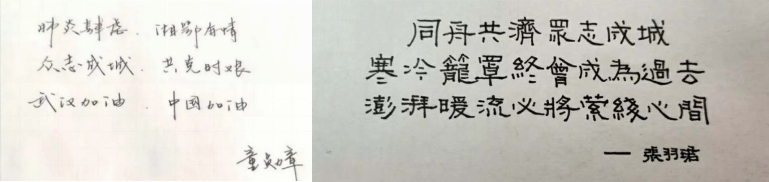 肺炎肆虐．湘鄂有情
众志成城．共克时艰
武汉加油．中国加油
童贞璋
同舟共濟眾志成城
寒冷籠罩終會成為過去
澎湃暖流必將縈繞心間
—張羽珺